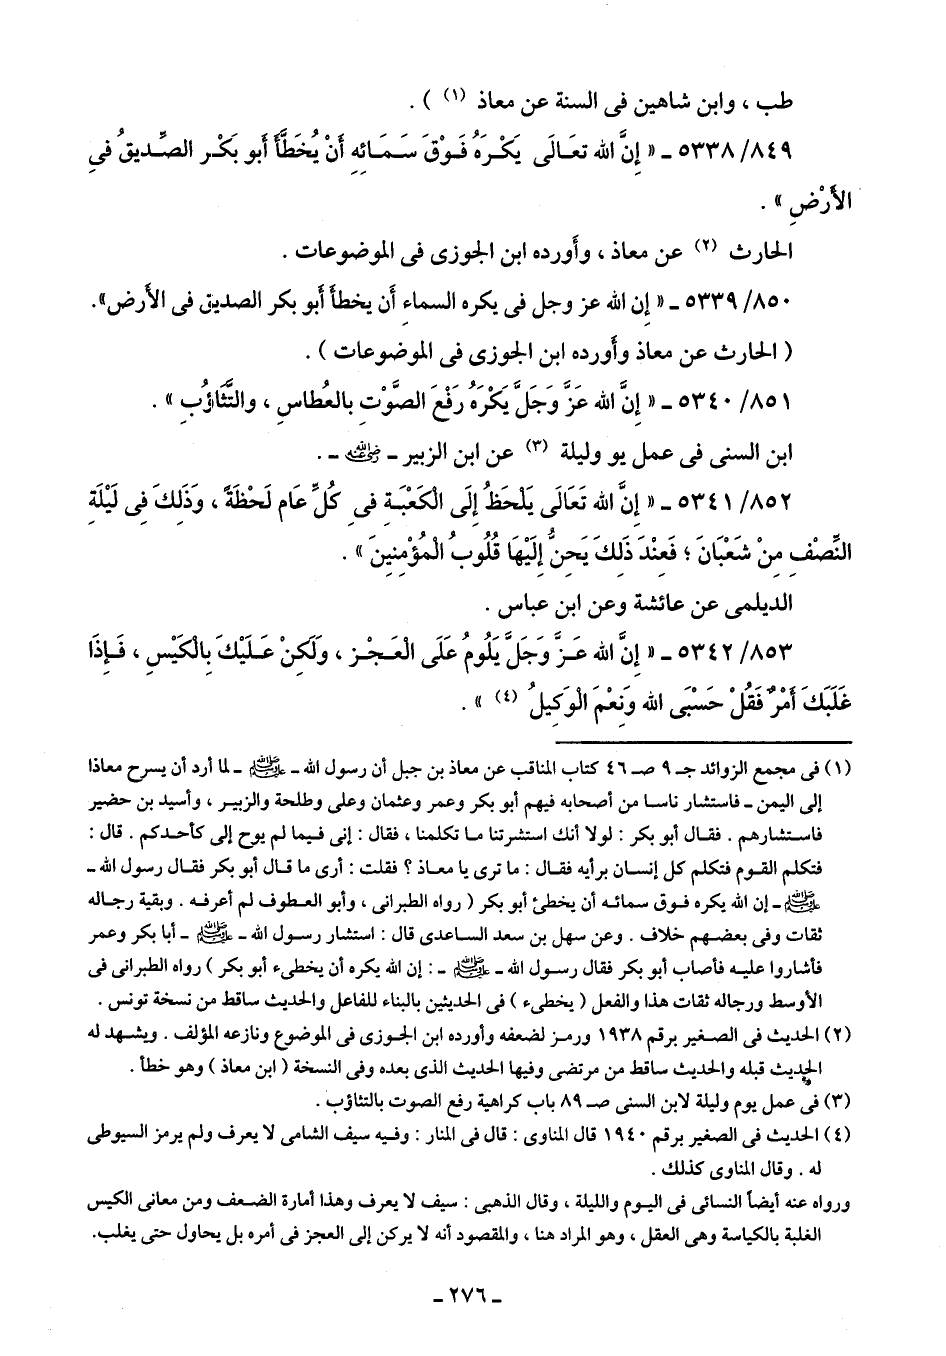 طب ، وابن شاهين فى السنة عن معاذ (١) ) .
٨٤٩/ ٥٣٣٨ ـ « إِنَّ الله تعَالَى يَكْرَهُ فَوْقَ سَمَائِهِ أَنْ يُخَطَّأَ أَبو بَكْر الصِّدِيقُ فِي
الأَرْضِ » .
الحارث (٢) عن معاذ ، وأورده ابن الجوزى فى الموضوعات .
٨٥٠/ ٥٣٣٩ ـ « إن الله عز وجل فى يكره السماء أن يخطأ أبو بكر الصديق فى الأرض».
( الحارث عن معاذ وأورده ابن الجوزى فى الموضوعات ) .
٨٥١/ ٥٣٤٠ ـ « إِنَّ الله عَزَّ وَجَلَّ يَكْرَهُ رَفْعَ الصَّوْتِ بالعُطاسِ ، والتَّثَاؤُبِ » .
ابن السنى فى عمل يو وليلة (٣) عن ابن الزبير ـ رضي الله عنه ـ .
٨٥٢/ ٥٣٤١ ـ « إِنَّ الله تَعَالَى يَلْحَظُ إِلَى الْكَعْبَةِ فِى كُلِّ عَامٍ لَحْظَةً ، وَذَلِكَ فِى لَيْلَةِ
النِّصْفِ مِنْ شَعْبَانَ ؛ فَعِنْدَ ذَلِكَ يَحِنُّ إِلَيْهَا قُلُوبُ الْمُؤْمِنِينَ » .
الديلمى عن عائشة وعن ابن عباس .
٨٥٣/ ٥٣٤٢ ـ « إِنَّ الله عَزَّ وَجَلَّ يَلُومُ عَلَى الْعَجْزِ ، وَلَكِنْ عَلَيْكَ بِالْكَيْسِ ، فَإِذَا
غَلَبَكَ أَمْرٌ فَقُلْ حَسْبَى الله وَنِعْمَ الْوَكِيلُ (٤) » .
(١) فى مجمع الزوائد جـ ٩ صـ ٤٦ كتاب المناقب عن معاذ بن جبل أن رسول الله ـ ﷺ ـ لما أرد أن يسرح معاذا
إلى اليمن ـ فاستشار ناسا من أصحابه فيهم أبو بكر وعمر وعثمان وعلى وطلحة والزبير ، وأسيد بن حضير
فاستشارهم . فقال أبو بكر : لولا أنك استشرتنا ما تكلمنا ، فقال : إنى فيما لم يوح إلى كأحدكم . قال :
فتكلم القوم فتكلم كل إنسان برأيه فقال : ما ترى يا معاذ ؟ فقلت : أرى ما قال أبو بكر فقال رسول الله ـ
ﷺ ـ إن الله يكره فوق سمائه أن يخطئ أبو بكر ( رواه الطبرانى ، وأبو العطوف لم أعرفه . وبقية رجاله
ثقات وفى بعضهم خلاف . وعن سهل بن سعد الساعدى قال : استشار رسول الله ـ ﷺ ـ أبا بكر وعمر
فأشاروا عليه فأصاب أبو بكر فقال رسول الله ـ ﷺ ـ : إن الله يكره أن يخطىء أبو بكر ) رواه الطبرانى فى
الأوسط ورجاله ثقات هذا والفعل ( يخطىء ) فى الحديثين بالبناء للفاعل والحديث ساقط من نسخة تونس .
(٢) الحديث فى الصغير برقم ١٩٣٨ ورمز لضعفه وأورده ابن الجوزى فى الموضوع ونازعه المؤلف . ويشهد له
الحديث قبله والحديث ساقط من مرتضى وفيها الحديث الذى بعده وفى النسخة ( ابن معاذ ) وهو خطأ .
(٣) فى عمل يوم وليلة لابن السنى صـ ٨٩ باب كراهية رفع الصوت بالتثاؤب .
(٤) الحديث فى الصغير برقم ١٩٤٠ قال المناوى : قال فى المنار : وفيه سيف الشامى لا يعرف ولم يرمز السيوطى
له . وقال المناوى كذلك .
ورواه عنه أيضاً النسائى فى اليوم والليلة ، وقال الذهبى : سيف لا يعرف وهذا أمارة الضعف ومن معانى الكيس
الغلبة بالكياسة وهى العقل ، وهو المراد هنا ، والمقصود أنه لا يركن إلى العجز فى أمره بل يحاول حتى يغلب.
ـ ٢٧٦ ـ